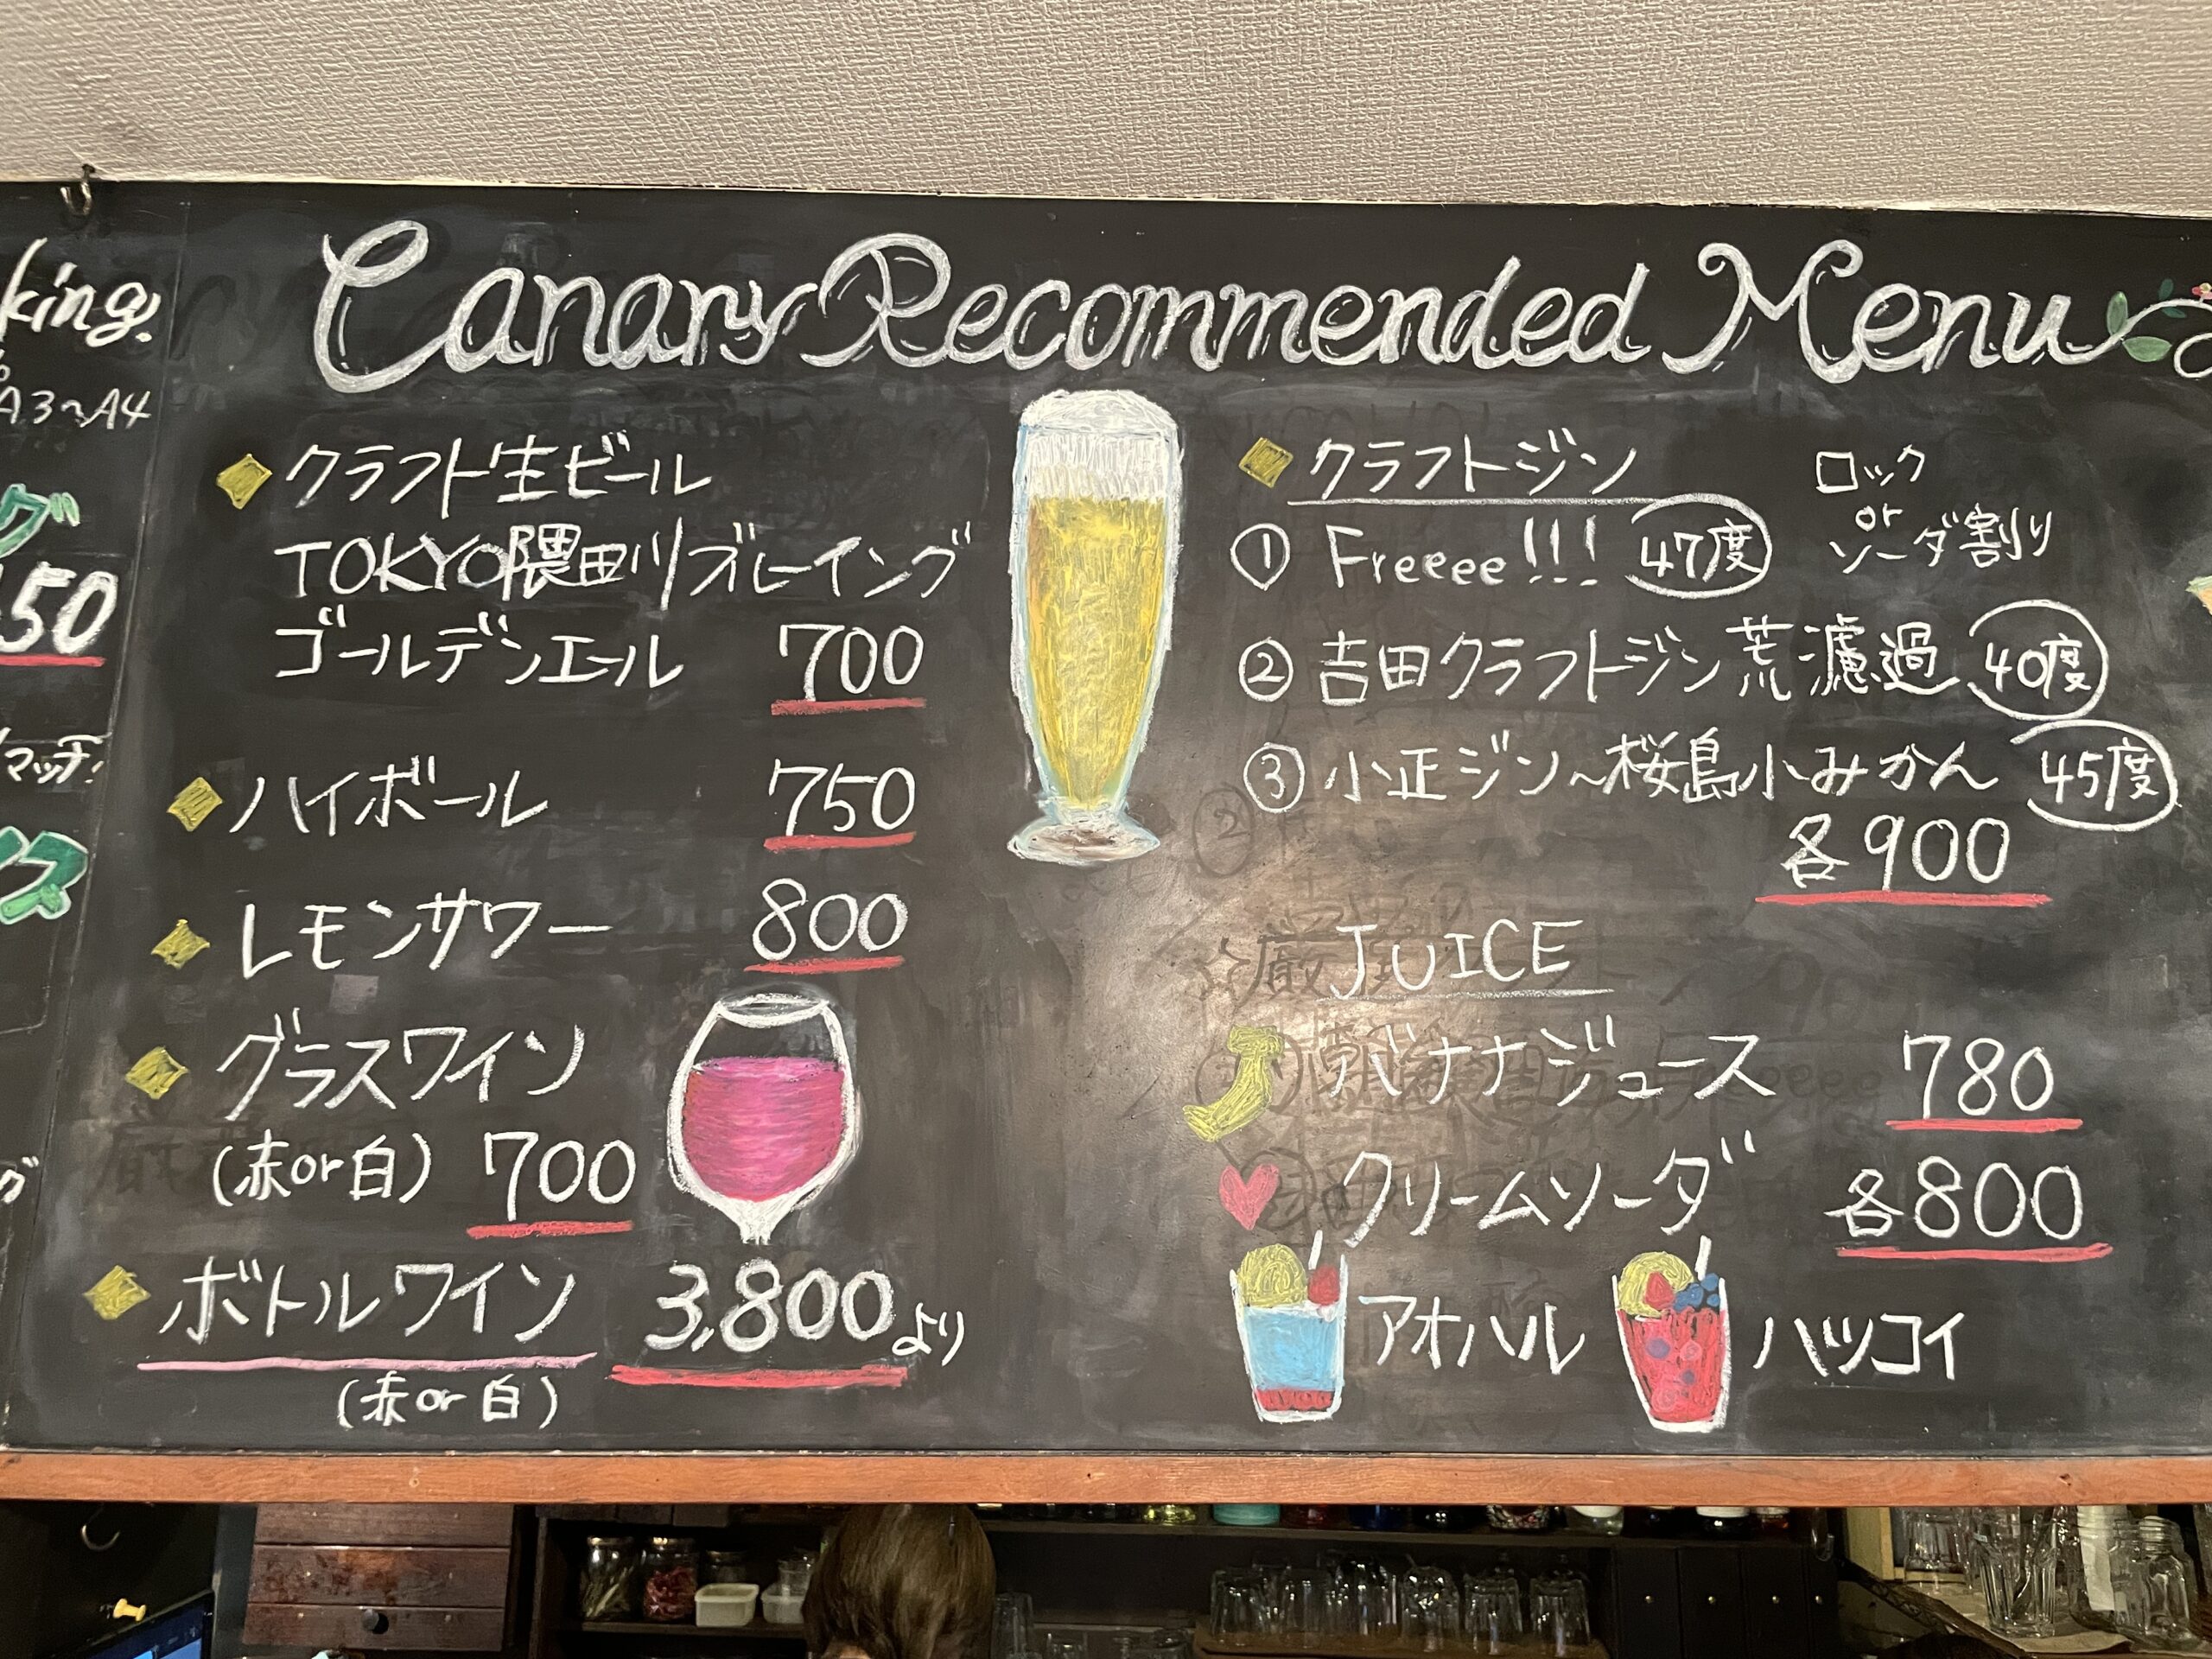 king.
A3〜A4
グ
50
マッチ!
ス
グ
Canary Recommended Menu
クラフト生ビール
TOKYO隅田川ブルーイング
ゴールデンエール 700
ハイボール 750
レモンサワー 800
グラスワイン
(赤or白) 700
ボトルワイン 3,800より
(赤or白)
クラフトジン
ロック
or
ソーダ割り
① Freeee!!! 47度
② 吉田クラフトジン荒濾過 40度
③ 小正ジン〜桜島小みかん 45度
各900
JUICE
バナナジュース 780
クリームソーダ 各800
アオハル ハツコイ